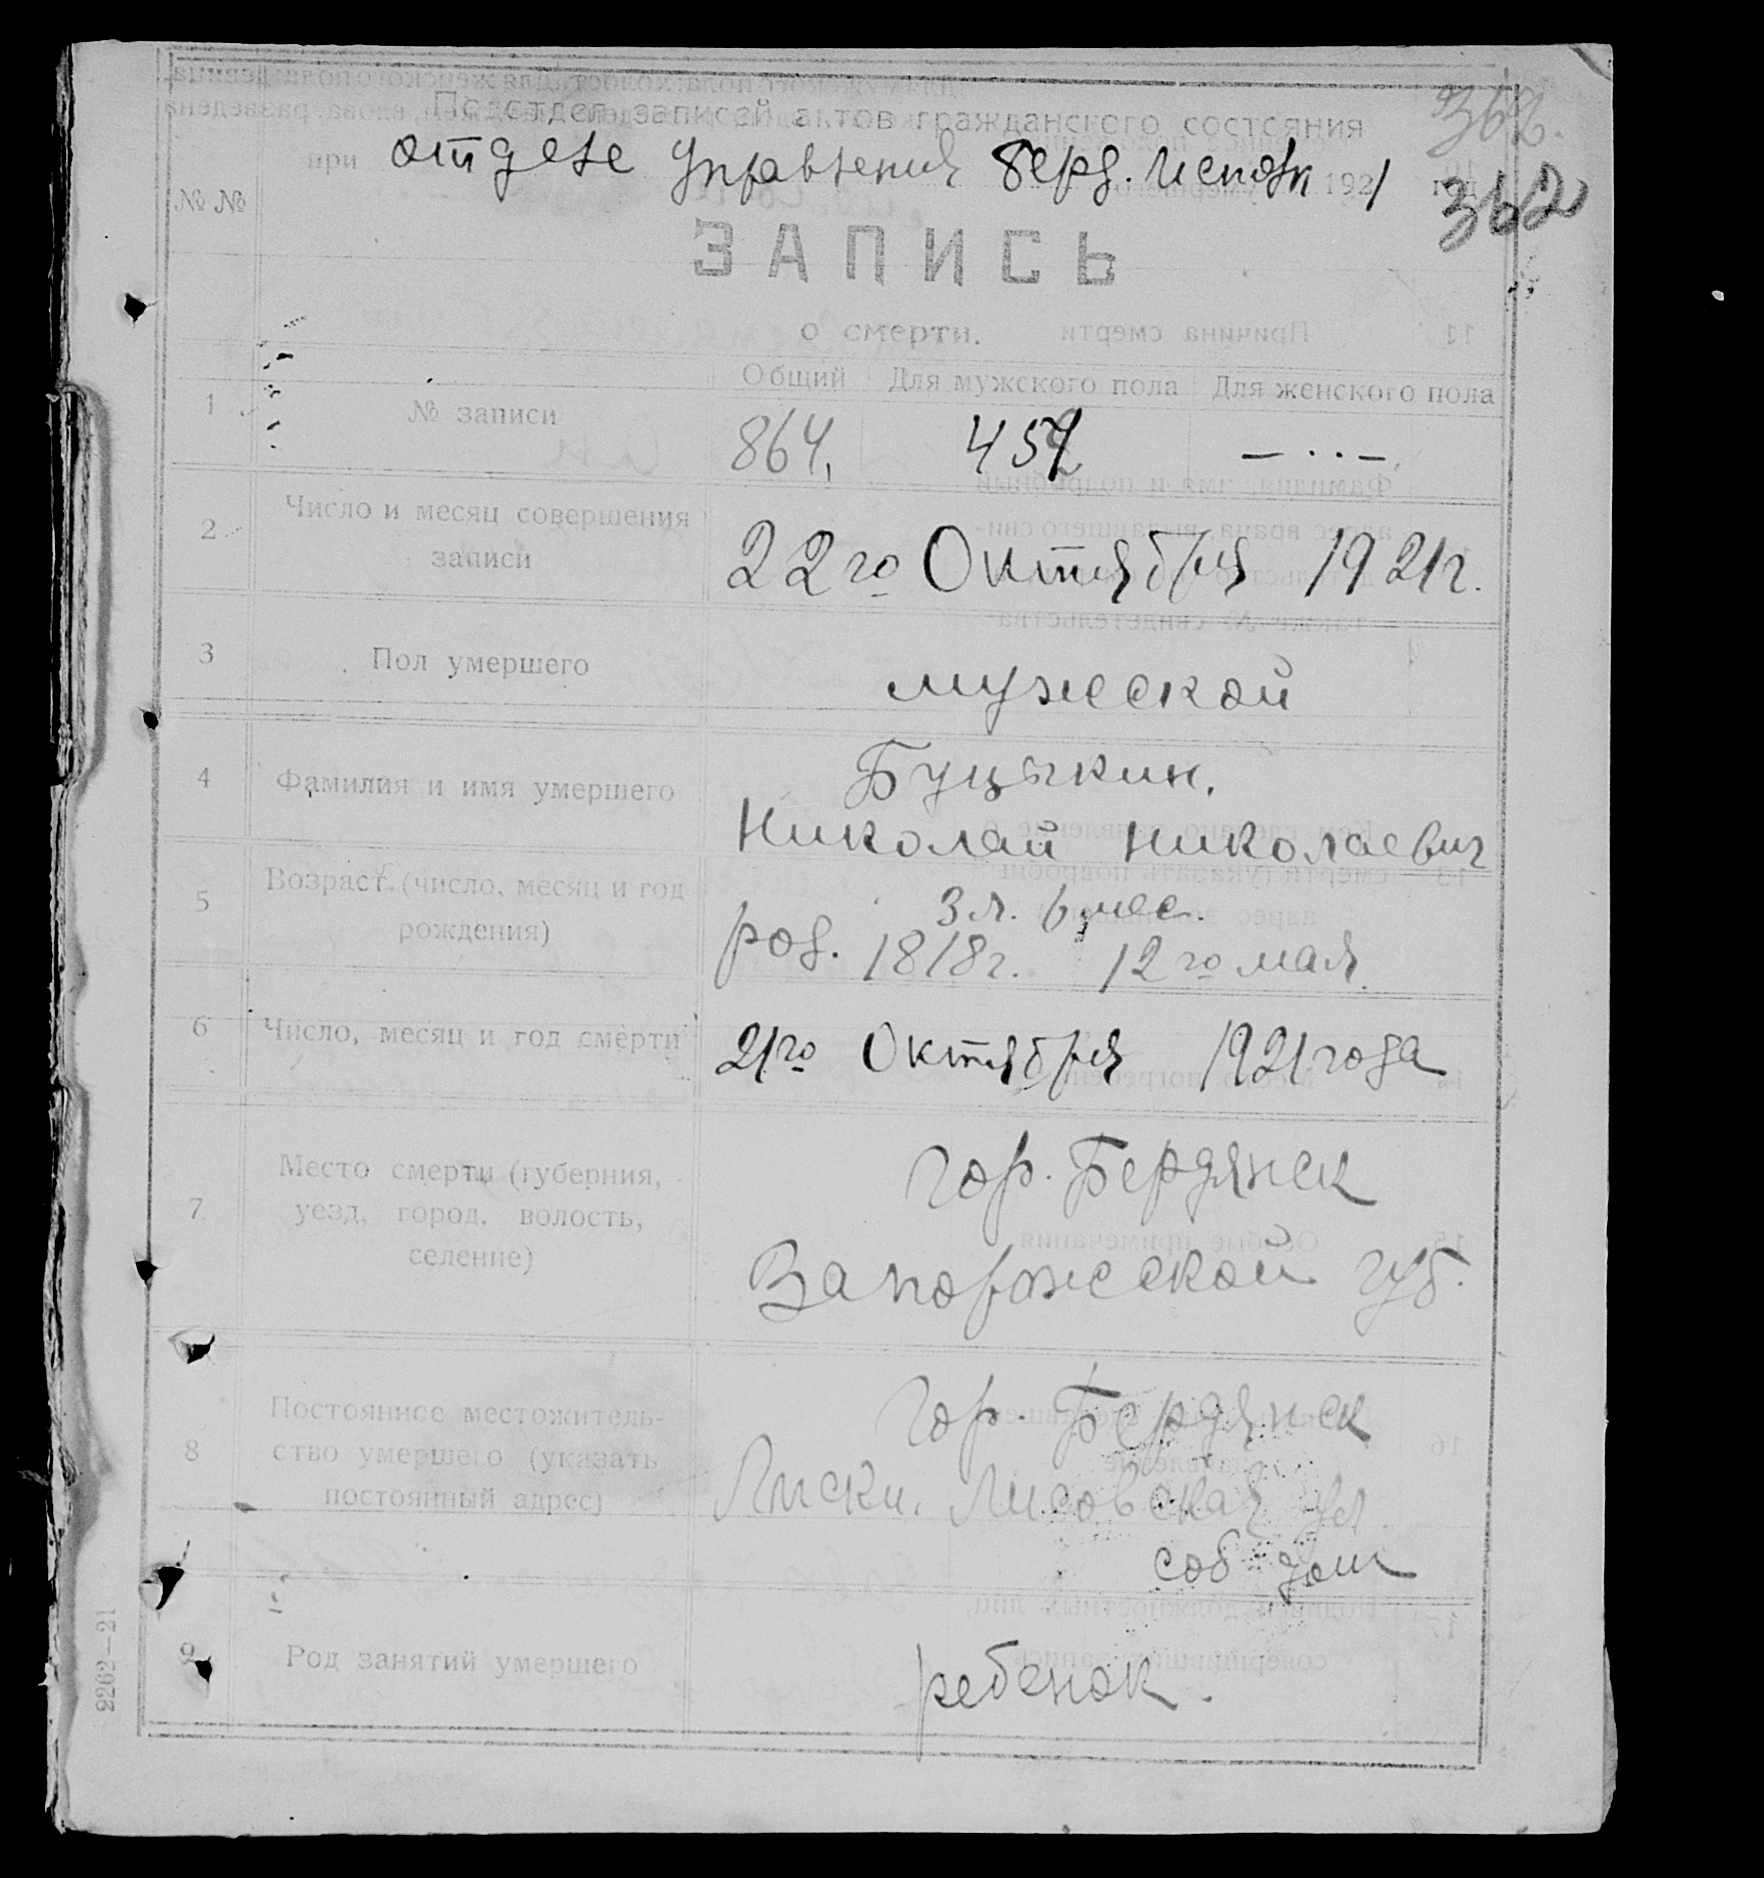 362.
Подотдел записей актов гражданского состояния
при отделе Управления Берд. Исполк 1921 год
362
№№
ЗАПИСЬ
о смерти.
Общий Для мужского пола Для женского пола
1 № записи 864, 457 — .. —
2 Число и месяц совершения
записи
22го Октября 1921г.
3 Пол умершего мужеской
4 Фамилия и имя умершего Буцыкин.
Николай Николаевич
5 Возраст (число, месяц и год
рождения)
3 л. 6 мес.
род. 1818г. 12го мая
6 Число, месяц и год смерти 21го Октября 1921 года
7 Место смерти (губерния,
уезд, город, волость,
селение)
гор. Бердянск
Запорожеской губ.
8 Постоянное местожитель-
ство умершего (указать
постоянный адрес)
гор. Бердянск
Лиски. Лисовская ул
соб дом
9 Род занятий умершего ребенок.
2262—21